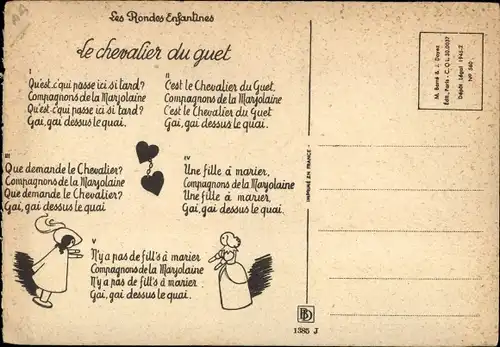 Les Rondes Enfantines
le chevalier du guet
I
Qu'est-c'qui passe ici si tard?
Compagnons de la Marjolaine
Qu'est-c'qui passe ici si tard?
Gai, gai, dessus le quai.
II
C'est le Chevalier du Guet.
Compagnons de la Marjolaine
C'est le Chevalier du Guet
Gai, gai dessus le quai.
III
Que demande le Chevalier?
Compagnons de la Marjolaine
Que demande le Chevalier?
Gai, gai, dessus le quai
IV
Une fille à marier,
Compagnons de la Marjolaine
Une fille à marier,
Gai, gai dessus le quai.
V
N'y a pas de fill's à marier
Compagnons de la Marjolaine
N'y a pas de fill's à marier.
Gai, gai, dessus le quai.
IMPRIMÉ EN FRANCE
BD
1385 J
M. Barré & J. Dayez
Édit. Paris - C.O.L. 30.0037
Dépôt Légal 1945-2
No 560